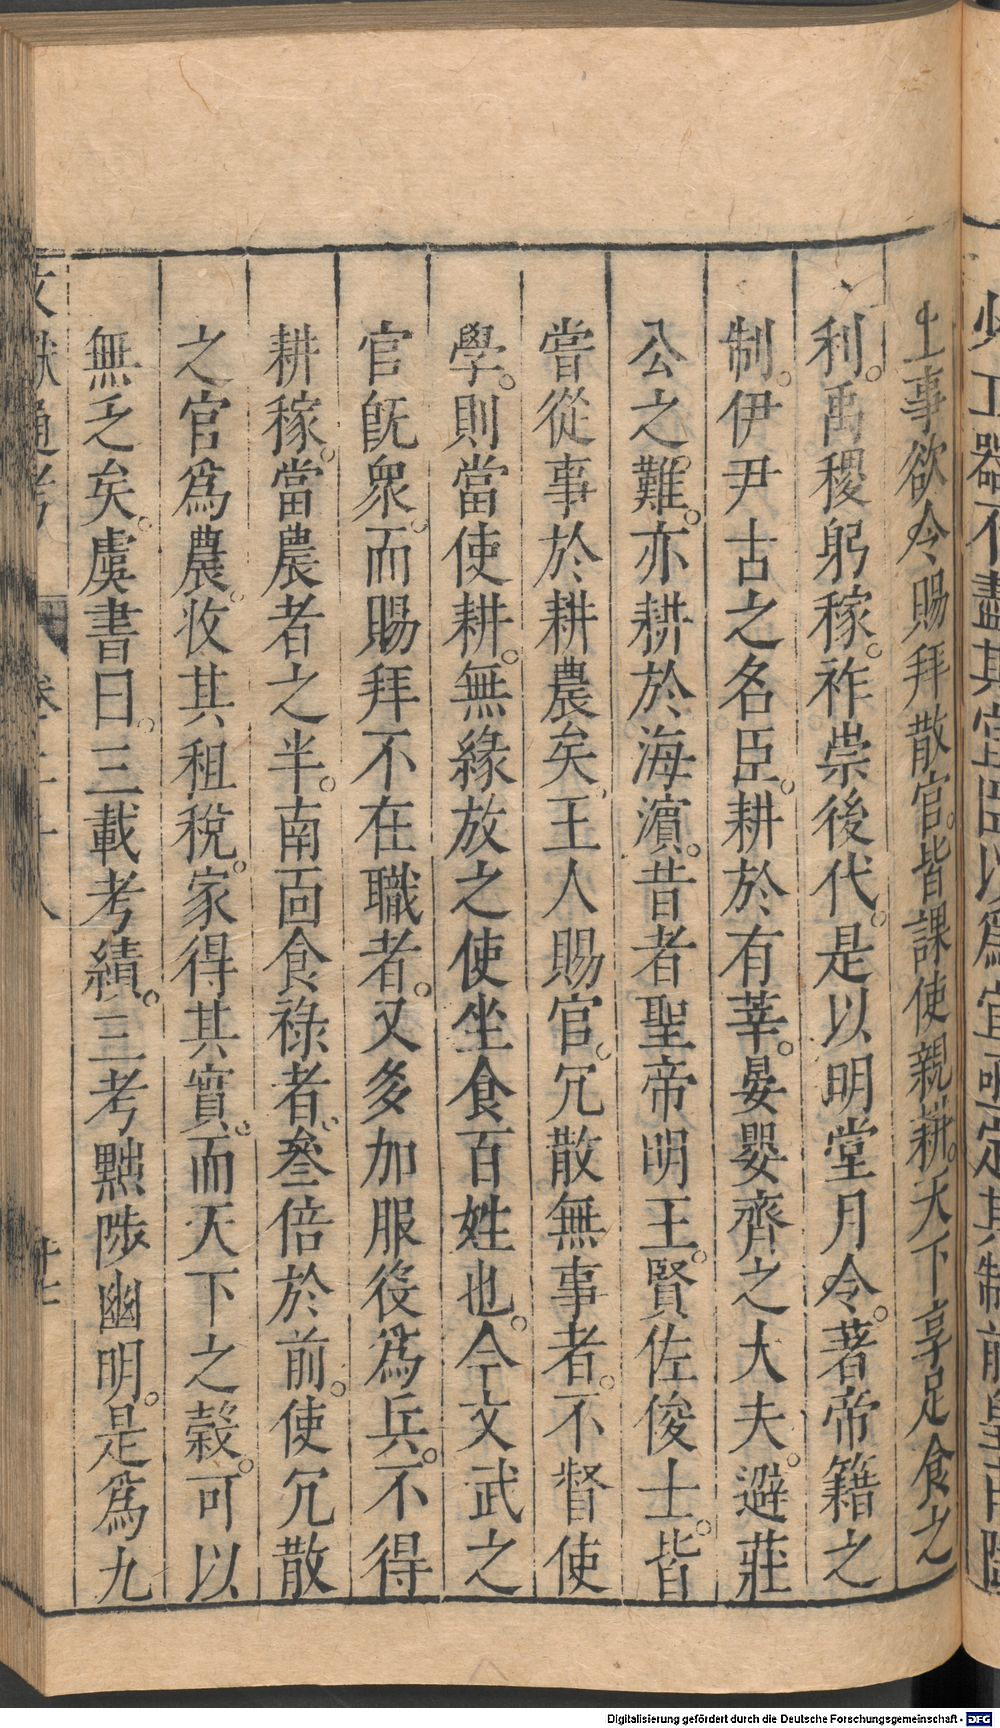 上事欲令賜拜散官。皆課使親耕。天下享足食之
利。禹稷躬稼。祚崇後代。是以明堂月令。著帝籍之
制。伊尹古之名臣。耕於有莘。晏嬰齊之大夫。避莊
公之難。亦耕於海濵。昔者聖帝明王。賢佐俊士。皆
嘗從事於耕農矣。王人賜官。冗散無事者。不督使
學。則當使耕。無緣放之使坐食百姓也。今文武之
官旣衆。而賜拜不在職者。又多加服役爲兵。不得
耕稼。當農者之半。南面食祿者。叄倍於前。使冗散
之官爲農。收其租稅。家得其實。而天下之榖。可以
無乏矣。虞書曰。三載考績。三考黜陟幽明。是爲九
文獻通考
卷三十八
廿七
Digitalisierung gefördert durch die Deutsche Forschungsgemeinschaft - DFG